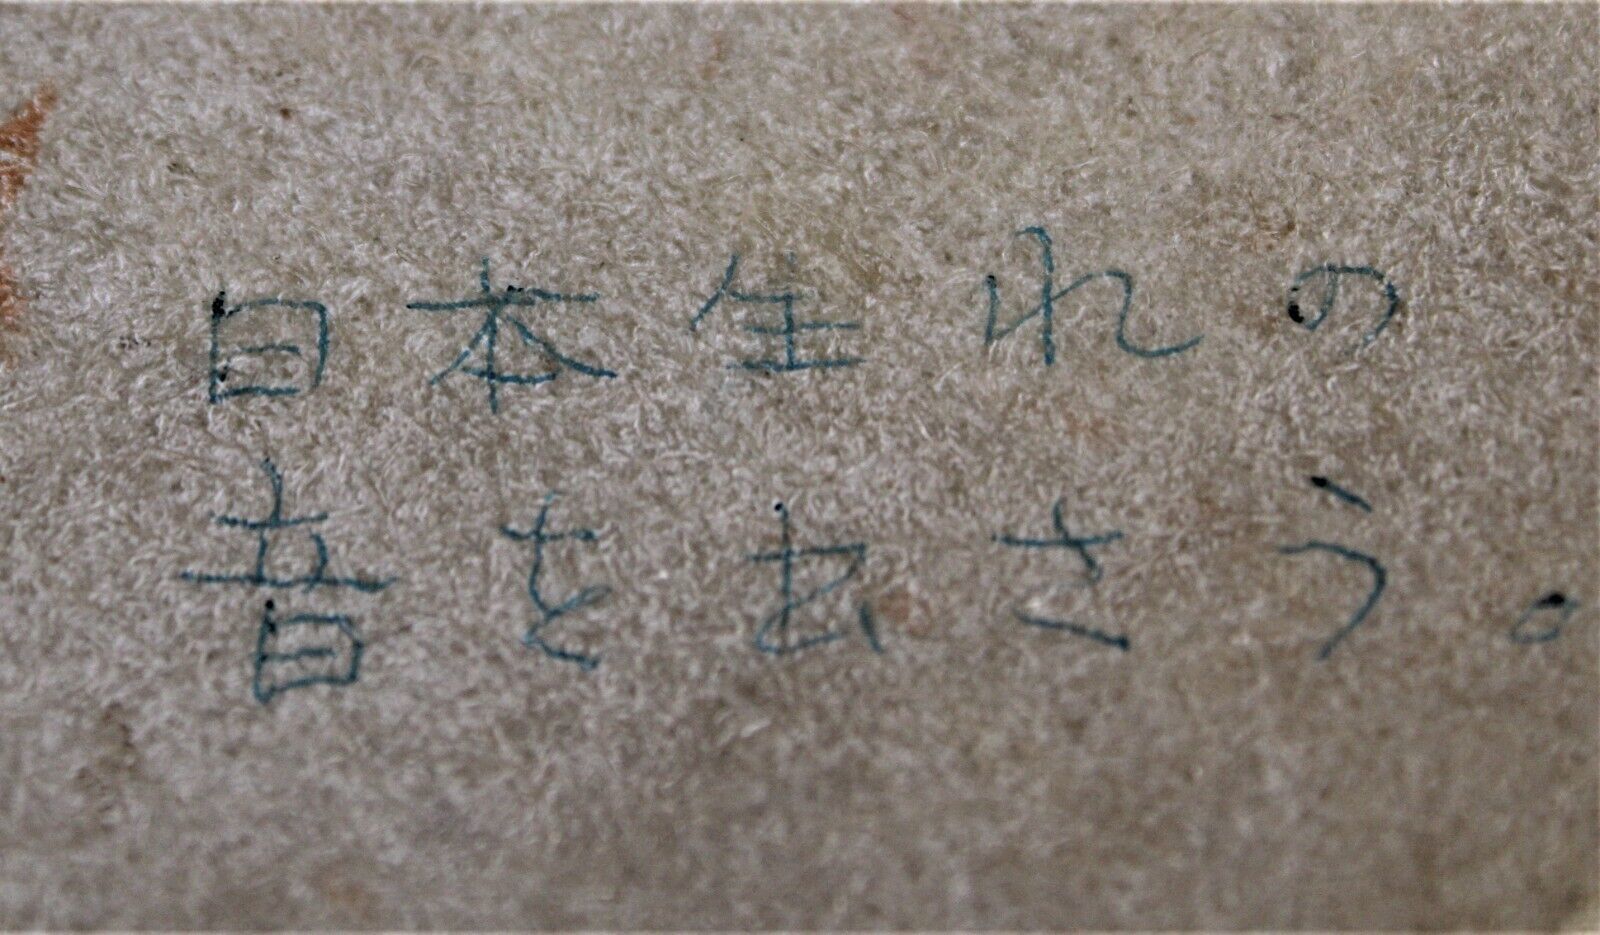 日本生れの
音を出さう。